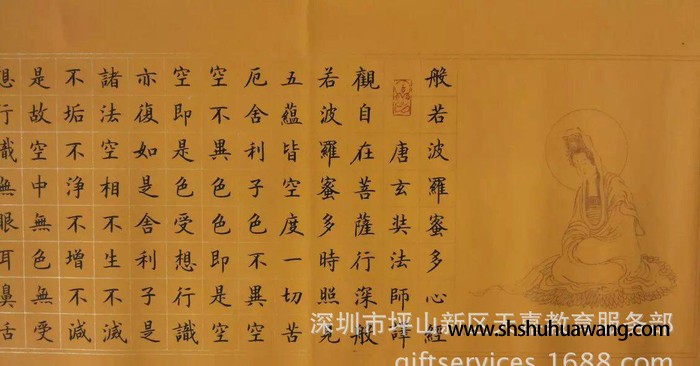 般若波羅蜜多心經
唐玄奘法師譯
觀自在菩薩行深般
若波羅蜜多時照見
五蘊皆空度一切苦
厄舍利子色不異空
空不異色色即是空
空即是色受想行識
亦復如是舍利子是
諸法空相不生不滅
不垢不淨不增不減
是故空中無色無受
想行識無眼耳鼻舌
深圳市坪山新区天嘉教育服务部
www.shshuhuawang.com
giftservices.1688.com